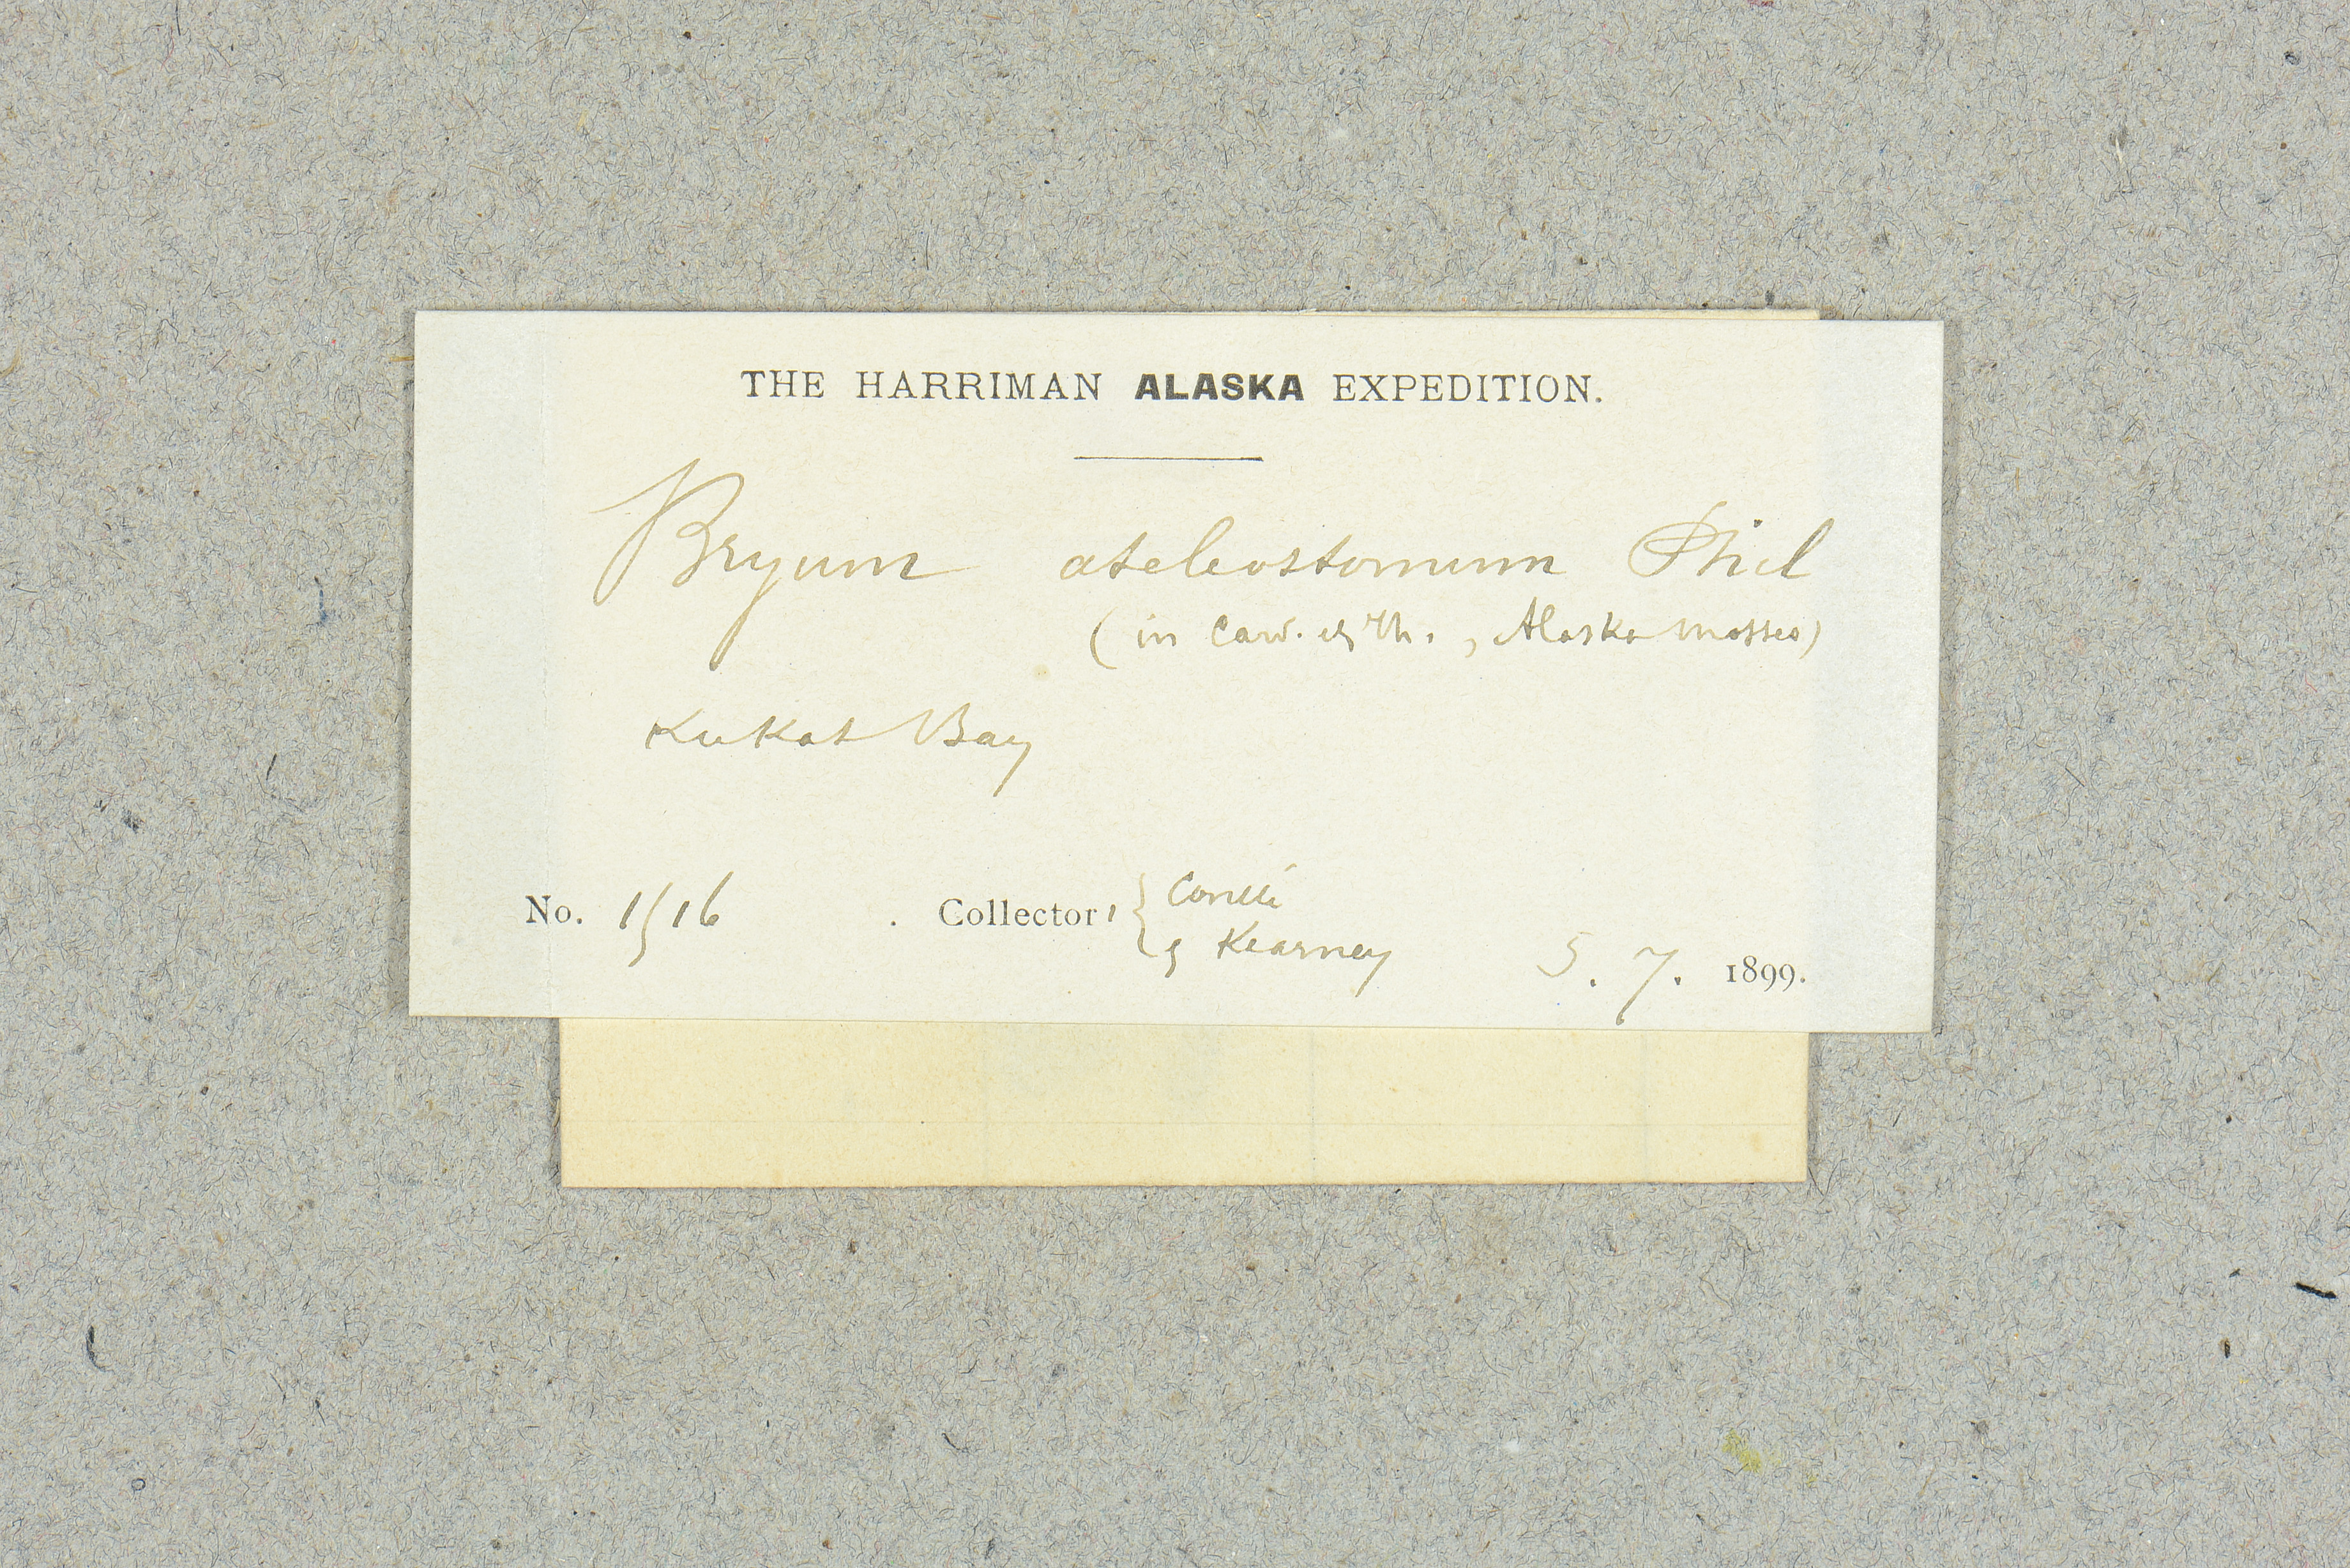 THE HARRIMAN ALASKA EXPEDITION.
Bryum ateleostomum Phil
(in Card. & Th., Alaska Mosses)
Kukak Bay
No. 1516 . Collector, { Corelli
& Kearney
5. 7. 1899.